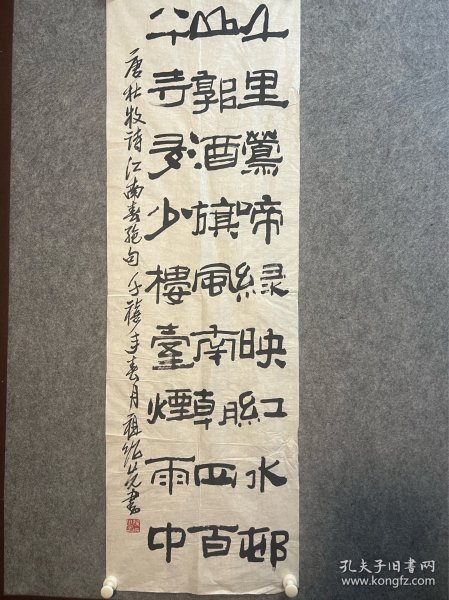 千里鶯啼緑映紅水邨
山郭酒旗風南朝四百
八十寺多少樓臺煙雨中
唐杜牧詩江南春絕句千禧年春月書
孔夫子旧书网
www.kongfz.com